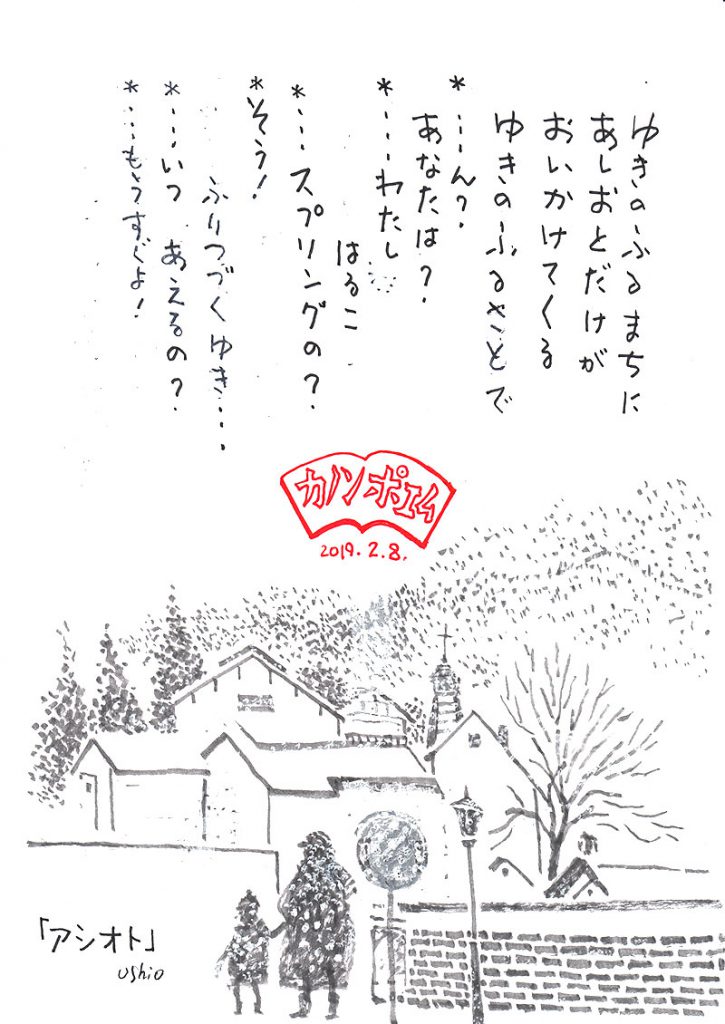 ゆきのふるまちに
あしおとだけが
おいかけてくる
ゆきのふるさとで
*…ん?
あなたは?
*…わたし…
はるこ
*…スプリングの?
*そう!
ふりつづくゆき…
*…いつ あえるの?
*…もうすぐよ!
カノンポエム
2019.2.8.
「アシオト」
ushio